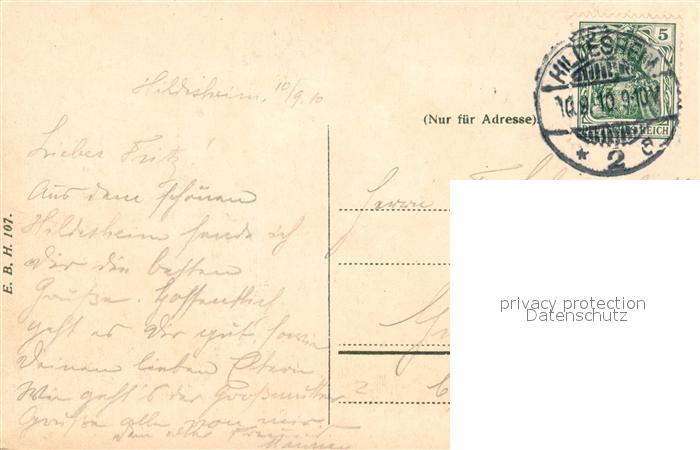 5
HILDESHEIM
10.9.10.9-10V.
* 2 c
REICH
Hildesheim, 10/9.10
(Nur für Adresse).
Lieber Fritz!
Aus dem schönen
Hildesheim sende ich
Dir die besten
Grüße. Hoffentlich
geht es Dir gut, sowie
Deinen lieben Eltern.
Wie geht's der Großmutter
Grüße alle von mir.
Dein alter Freund
Herrn
E. B. H. 107.
privacy protection
Datenschutz